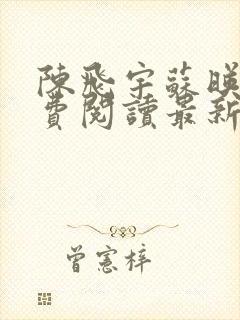 陳飛宇蘇映
費閱讀最新
曾憲梓